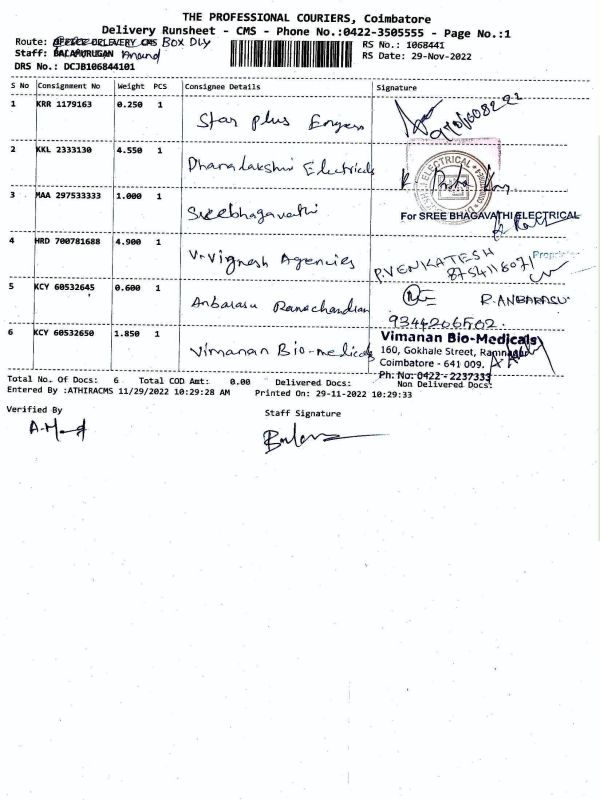 THE PROFESSIONAL COURIERS, Coimbatore
Delivery Runsheet - CMS - Phone No.:0422-3505555 - Page No.:1
Route: OFFICE DELEVERY CMS BOX DLY
RS No.: 1068441
Staff: BALAMURUGAN Anand
RS Date: 29-Nov-2022
DRS No.: DCJB106844101
S No Consignment No Weight PCS Consignee Details Signature
1 KRR 1179163 0.250 1 Star plus Engers
2 KKL 2333130 4.550 1 Dhanalakshmi Electricals
ELECTRICAL
3 MAA 297533333 1.000 1 Sreebhagavathi
For SREE BHAGAVATHI ELECTRICAL
Proprietor
4 HRD 700781688 4.900 1 V.Vignesh Agencies P.VENKATESH
8754118071
5 KCY 60532645 0.600 1 Anbarasu Ramachandran R.ANBARASU
9344206502.
6 KCY 60532650 1.850 1 Vimanan Bio-medicals
Vimanan Bio-Medicals
160, Gokhale Street, Ramnagar
Coimbatore - 641 009.
Ph. No: 0422 - 2237333
Total No. Of Docs: 6 Total COD Amt: 0.00 Delivered Docs: Non Delivered Docs:
Entered By :ATHIRACMS 11/29/2022 10:29:28 AM Printed On: 29-11-2022 10:29:33
Verified By Staff Signature